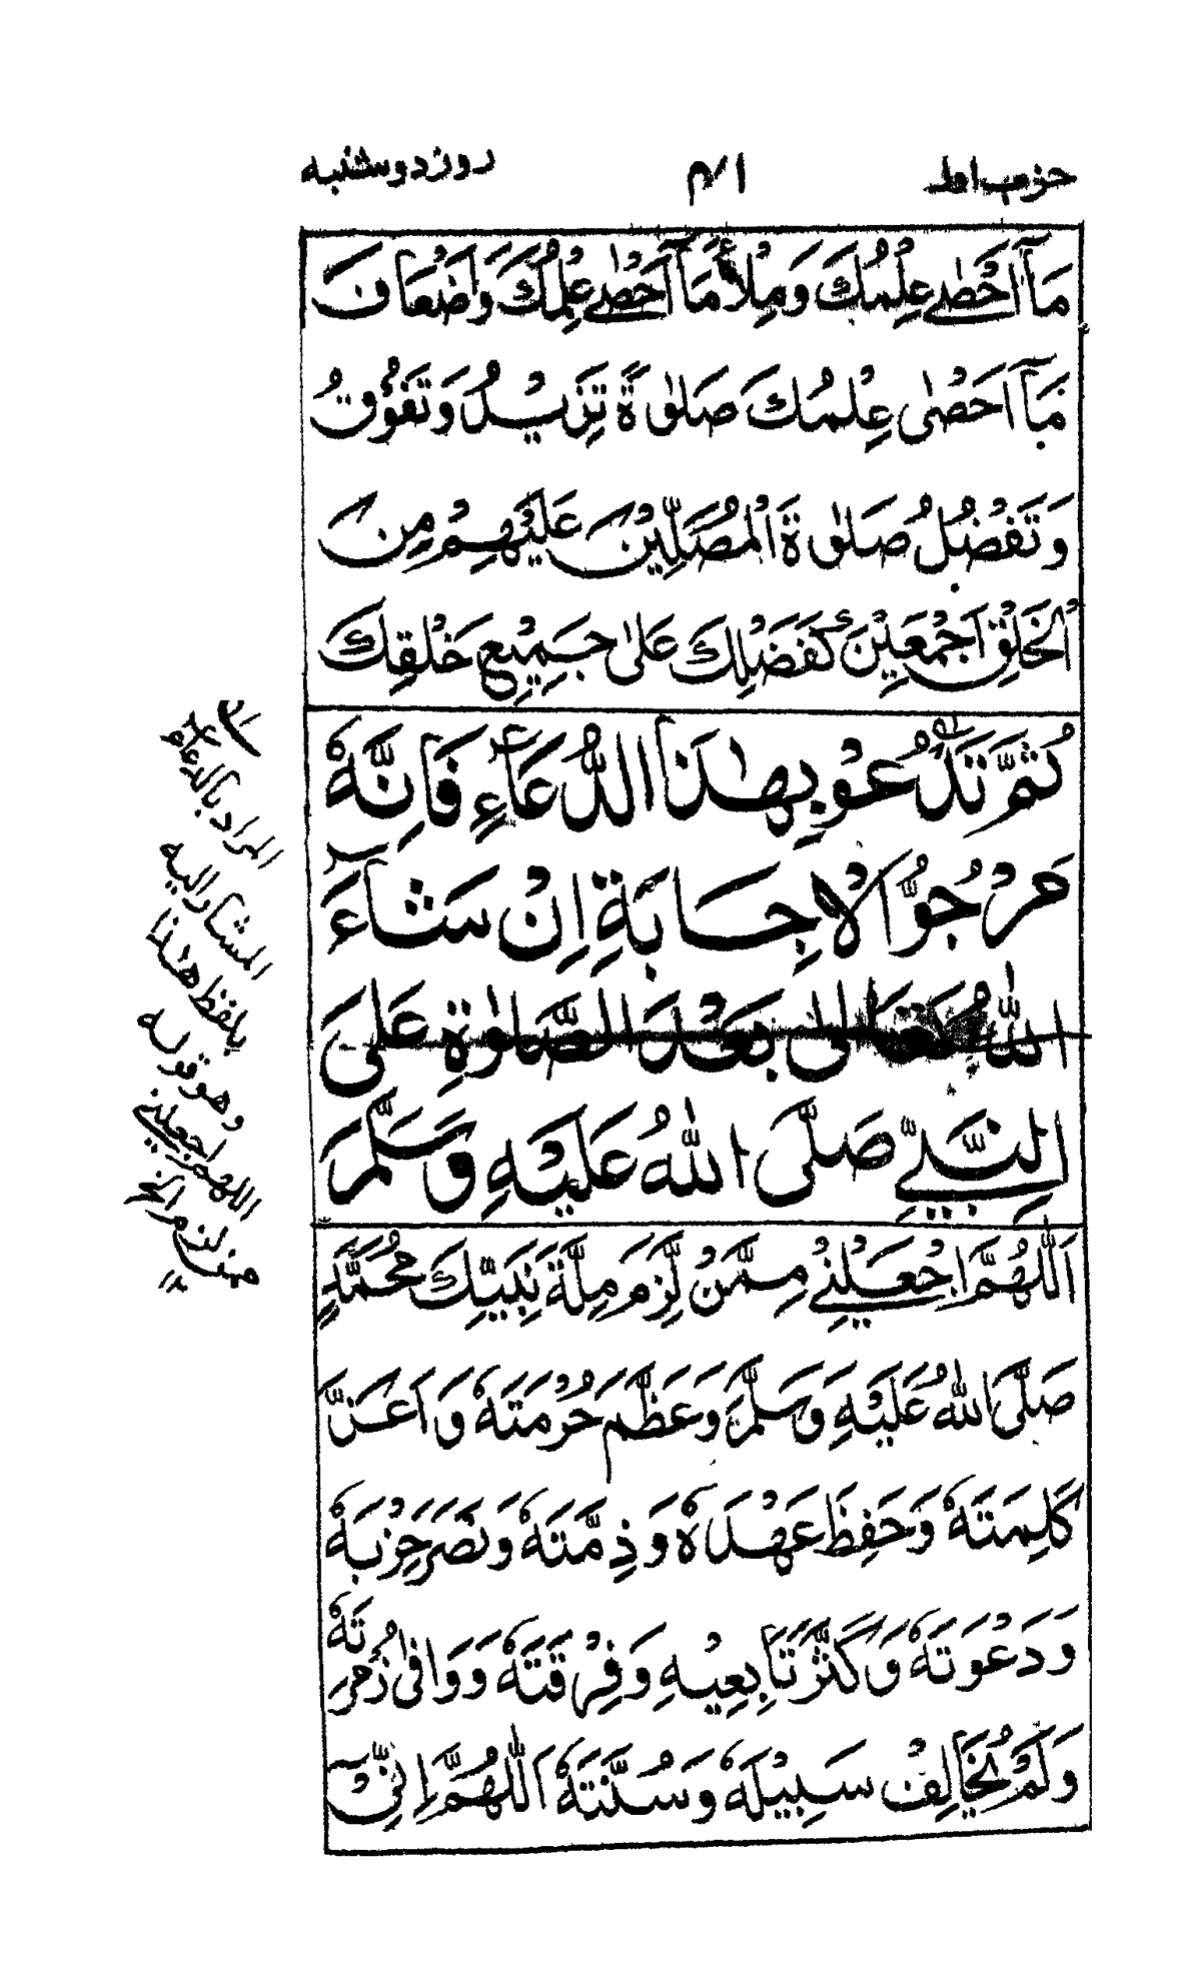 حزب اول
روز دوشنبہ
مَآ اَحْصٰے عِلْمُكَ وَمِلْأَ مَآ اَحْصٰے عِلْمُكَ وَاَضْعَافَ
مَآ اَحْصٰى عِلْمُكَ صَلٰوةً تَزِيْدُ وَتَفُوْقُ
وَتَفْضُلُ صَلٰوةَ الْمُصَلِّيْنَ عَلَيْهِمْ مِنَ
الْخَلْقِ اَجْمَعِيْنَ كَفَضْلِكَ عَلٰى جَمِيْعِ خَلْقِكَ
ثُمَّ تَدْعُوْ بِهٰذَا الدُّعَآءِ فَاِنَّهٗ
مَرْجُوُّ الْاِجَابَةِ اِنْ شَآءَ
اللّٰهُ تَعَالٰى بَعْدَ الصَّلٰوةِ عَلَى
النَّبِيِّ صَلَّى اللّٰهُ عَلَيْهِ وَسَلَّمَ
اَللّٰهُمَّ اجْعَلْنِيْ مِمَّنْ لَّزِمَ مِلَّةَ نَبِيِّكَ مُحَمَّدٍ
صَلَّى اللّٰهُ عَلَيْهِ وَسَلَّمَ وَعَظَّمَ حُرْمَتَهٗ وَاَعَزَّ
كَلِمَتَهٗ وَحَفِظَ عَهْدَهٗ وَذِمَّتَهٗ وَنَصَرَ حِزْبَهٗ
وَدَعْوَتَهٗ وَكَثَّرَ تَابِعِيْهِ وَفِرْقَتَهٗ وَوَافٰى زُمْرَتَهٗ
وَلَمْ يُخَالِفْ سَبِيْلَهٗ وَسُنَّتَهٗ اَللّٰهُمَّ اِنِّيْ
المراد بالدعاء
المشار اليه
بلفظ هذا
وهو قوله
اللهم اجعلني
ممن لزم الخ
١٢